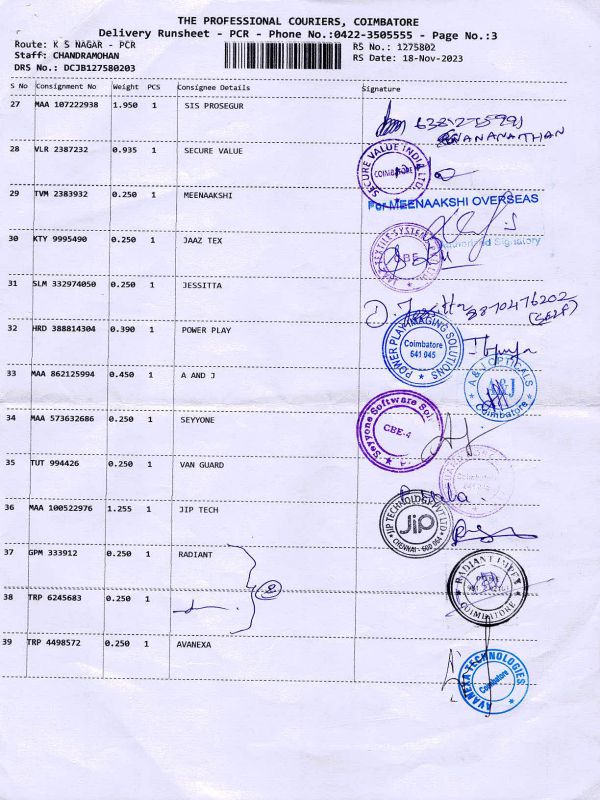 THE PROFESSIONAL COURIERS, COIMBATORE
Delivery Runsheet - PCR - Phone No.:0422-3505555 - Page No.:3
Route: K S NAGAR - PCR
Staff: CHANDRAMOHAN
DRS No.: DCJB127580203
RS No.: 1275802
RS Date: 18-Nov-2023
S No Consignment No Weight PCS Consignee Details Signature
27 MAA 107222938 1.950 1 SIS PROSEGUR
28 VLR 2387232 0.935 1 SECURE VALUE
SECURE VALUE INDIA LTD
COIMBATORE
29 TVM 2383932 0.250 1 MEENAAKSHI
For MEENAAKSHI OVERSEAS
Authorised Signatory
30 KTY 9995490 0.250 1 JAAZ TEX
CBE
31 SLM 332974050 0.250 1 JESSITTA
8870476202
(SELF)
32 HRD 388814304 0.390 1 POWER PLAY
POWER PLAY IMAGING SOLUTIONS
Coimbatore
641 045
33 MAA 862125994 0.450 1 A AND J
A&J OPTICALS
A&J
Coimbatore
34 MAA 573632686 0.250 1 SEYYONE
Seyyone Software Sol
CBE-4
35 TUT 994426 0.250 1 VAN GUARD
Coimbatore
36 MAA 100522976 1.255 1 JIP TECH
JIP TECHNOLOGY PVT LTD
JIP
CHENNAI - 600 064
37 GPM 333912 0.250 1 RADIANT
2
RADIANT IMPEX
COIMBATORE
38 TRP 6245683 0.250 1
39 TRP 4498572 0.250 1 AVANEXA
AVANEXA TECHNOLOGIES
Coimbatore